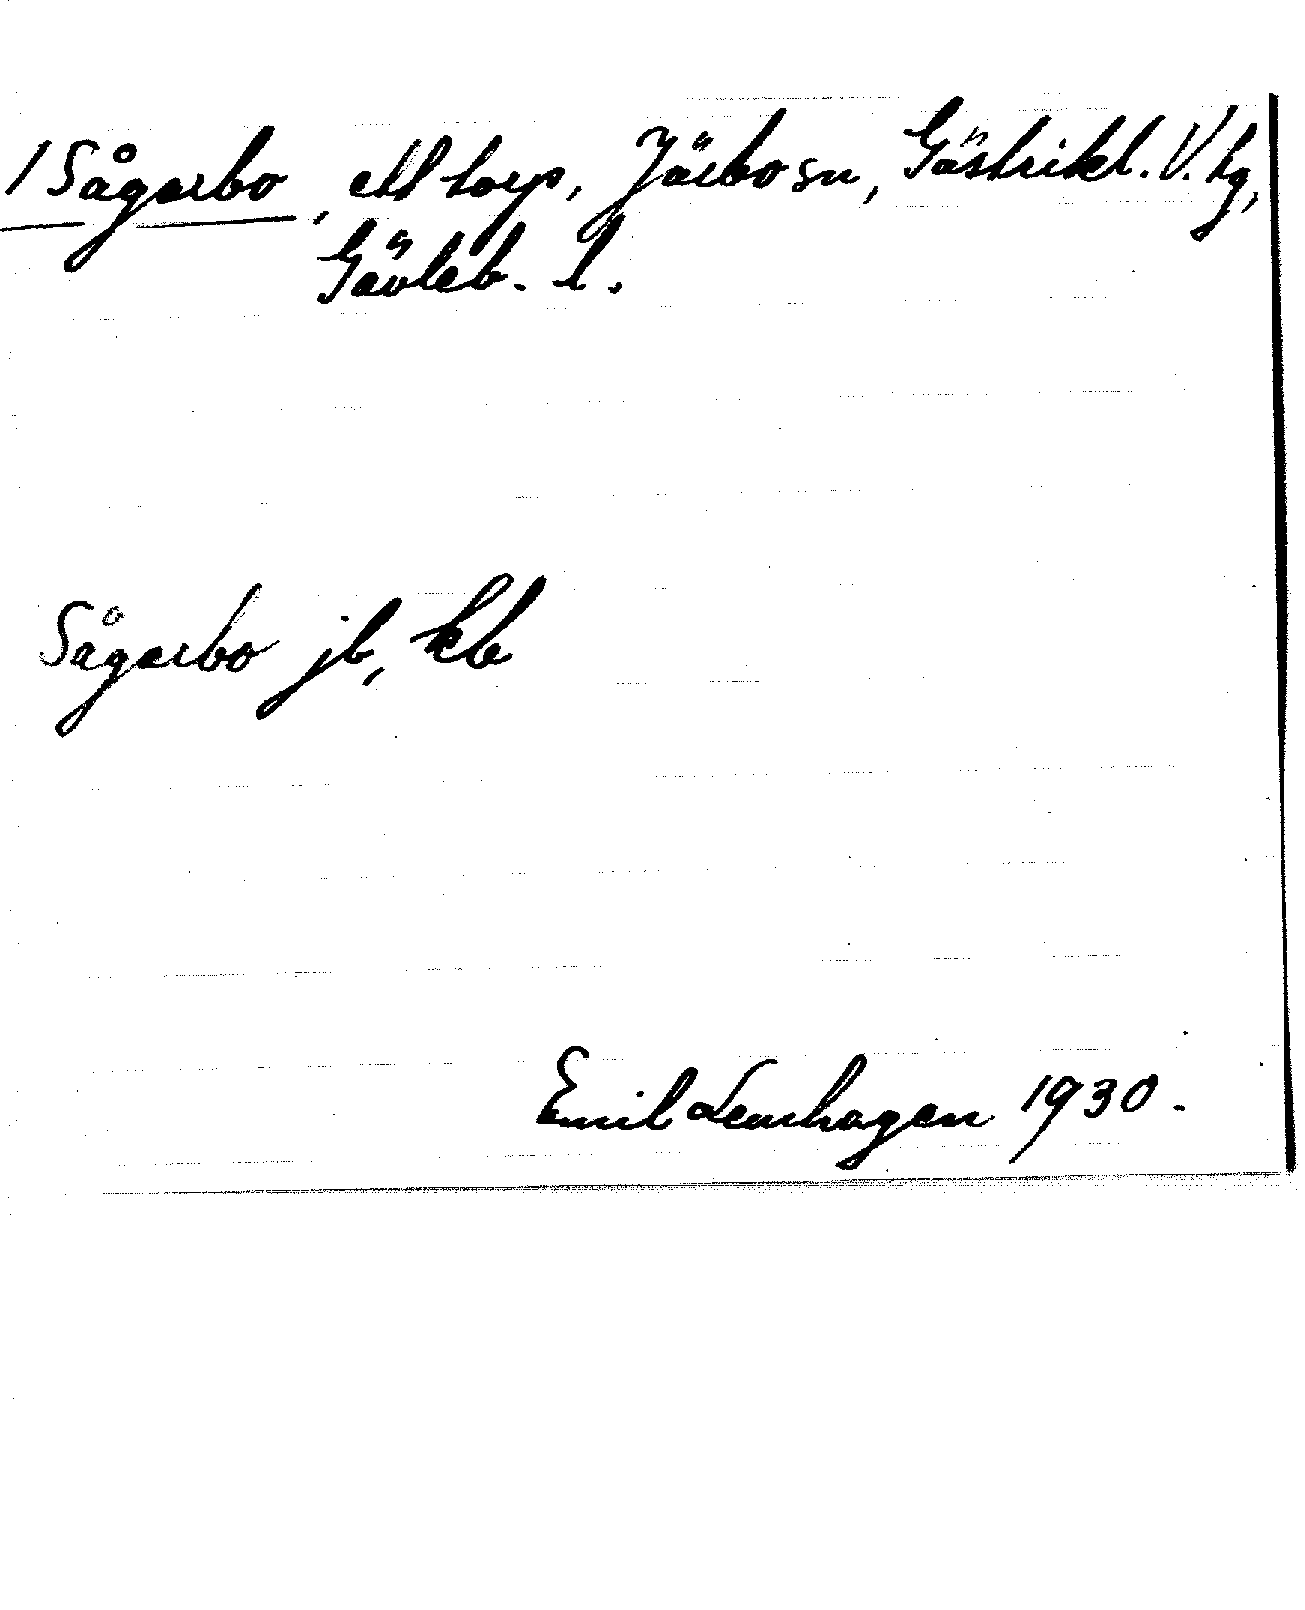 1 Sågarbo, ett torp, Järbo sn, Gästrikl. V. tg,
Gävleb. l.
Sågarbo jb, kb
Emil Lenhagen 1930.